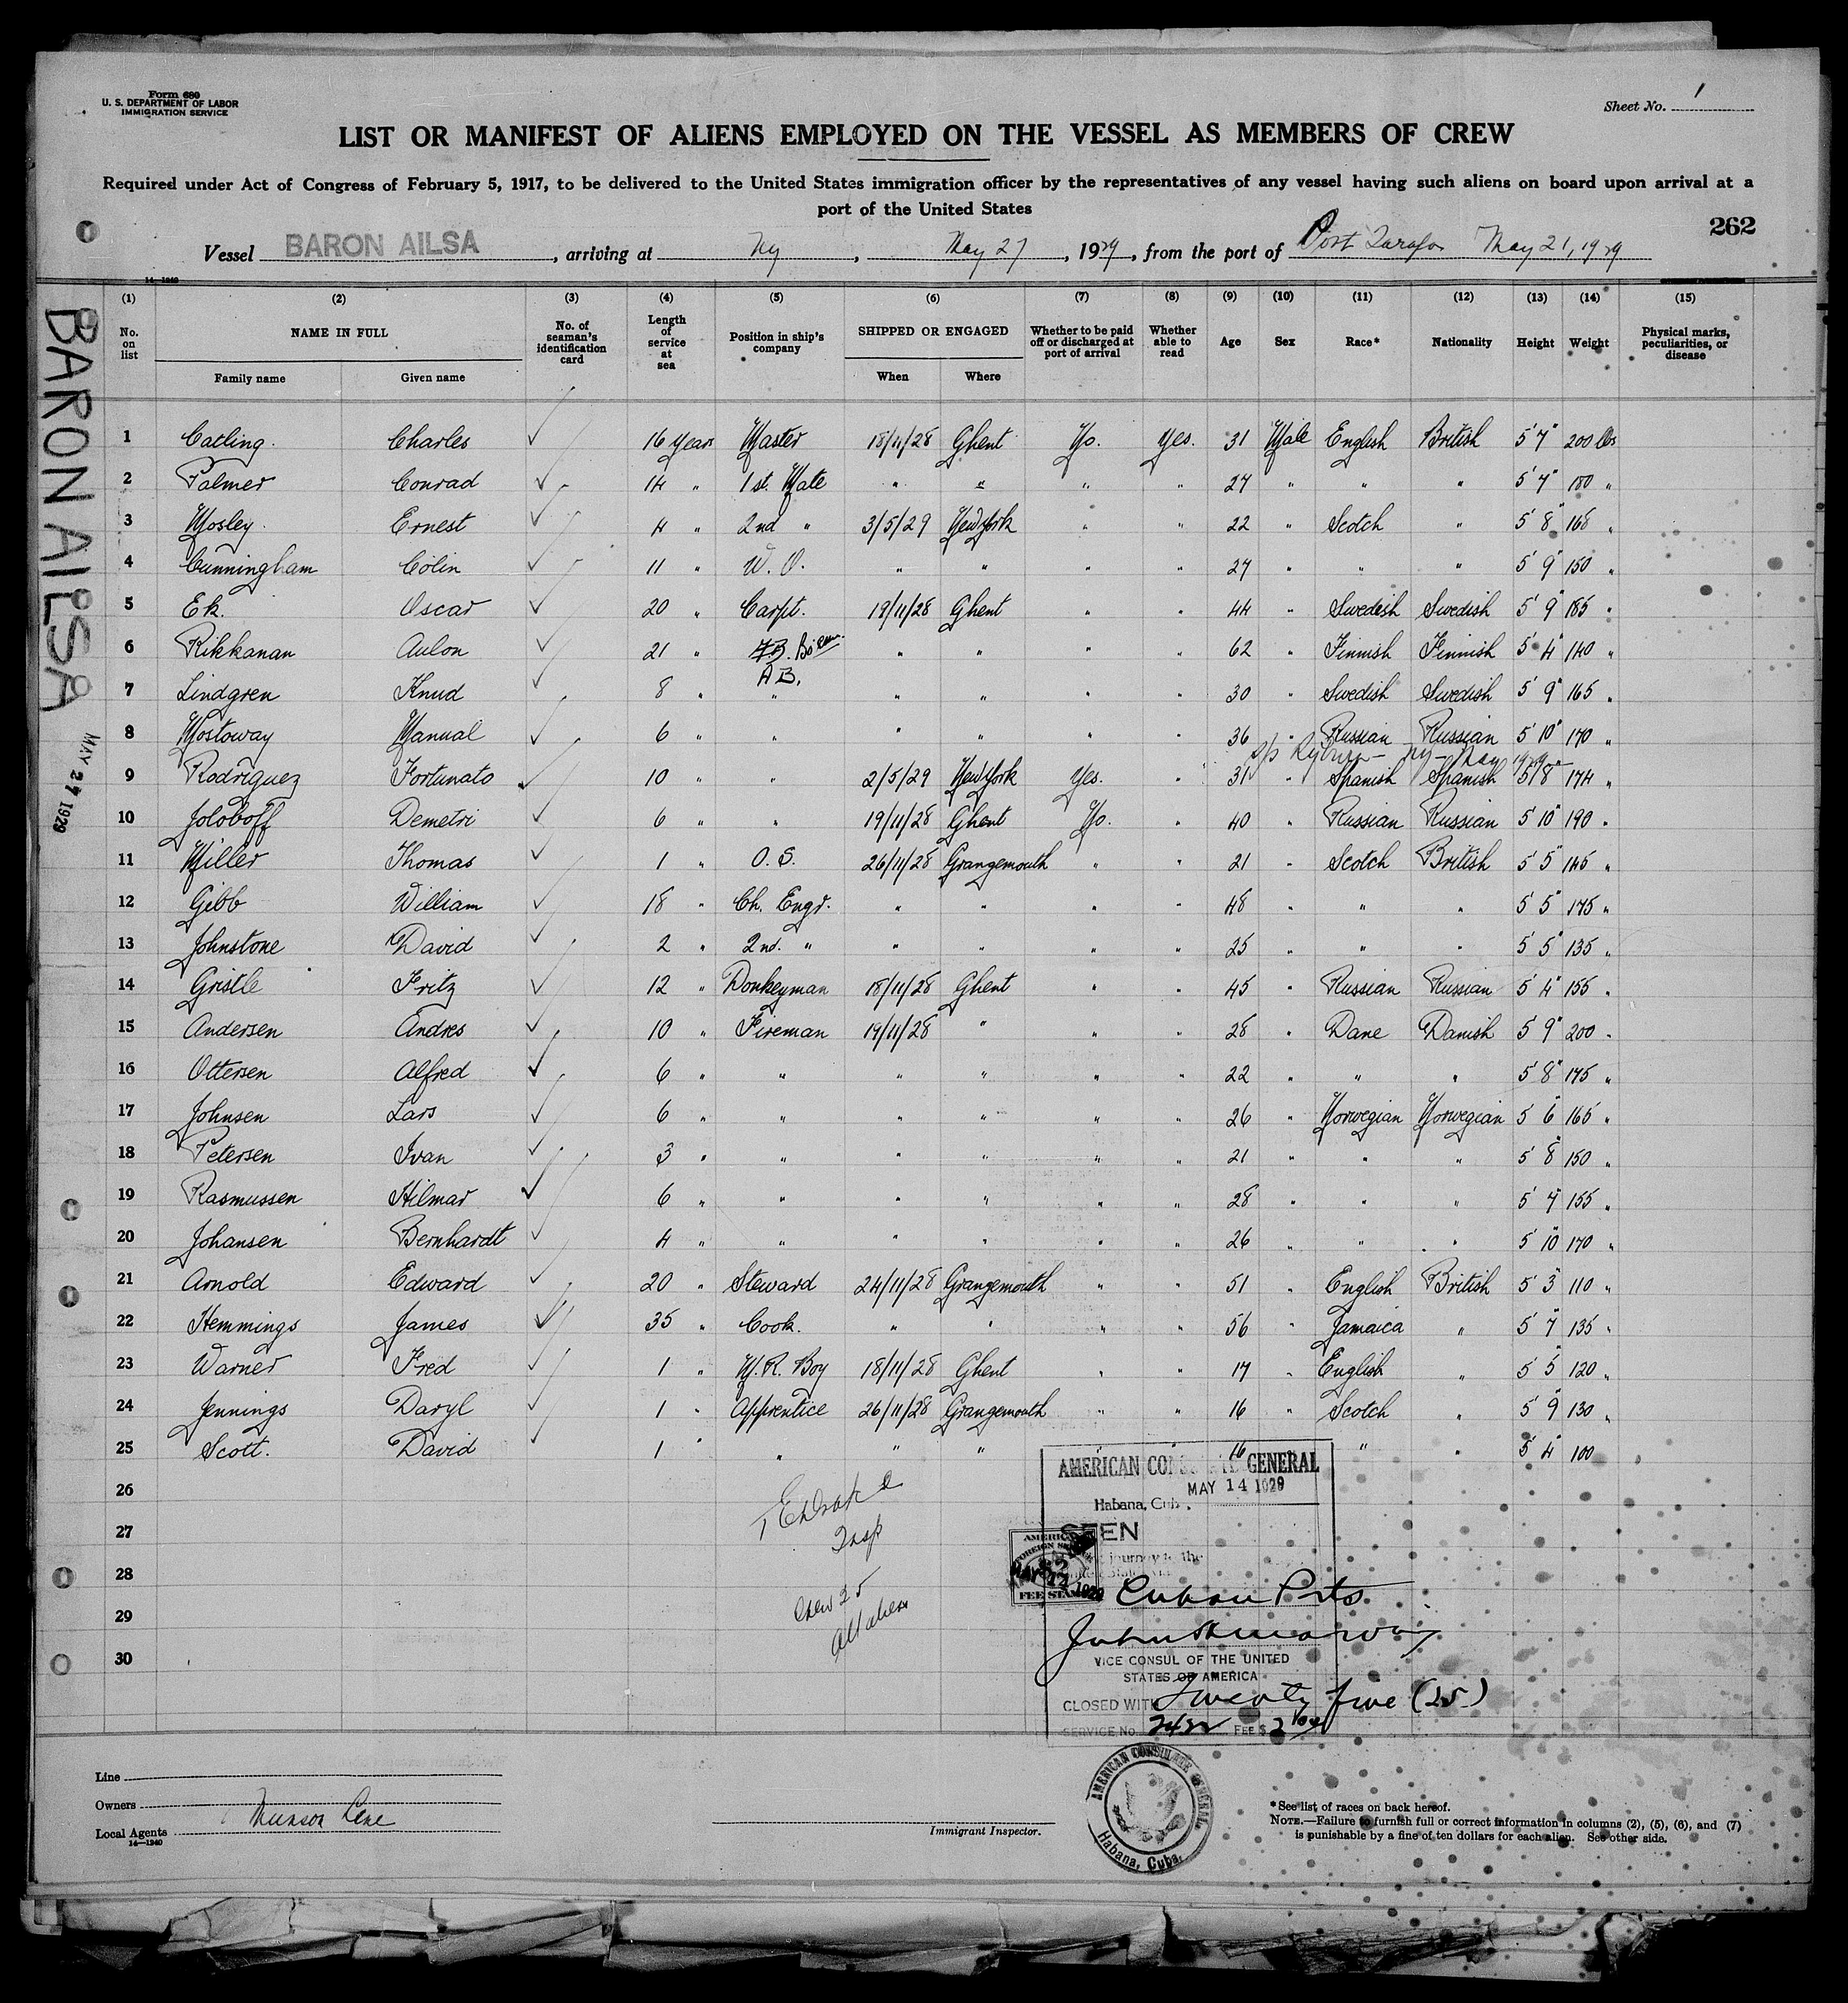 Form 680
U. S. DEPARTMENT OF LABOR
IMMIGRATION SERVICE
Sheet No. 1
LIST OR MANIFEST OF ALIENS EMPLOYED ON THE VESSEL AS MEMBERS OF CREW
Required under Act of Congress of February 5, 1917, to be delivered to the United States immigration officer by the representatives of any vessel having such aliens on board upon arrival at a
port of the United States
262
Vessel BARON AILSA, arriving at Ny, May 27, 1929, from the port of Port Tarafa May 21, 1929
14-1240
(1) (2) (3) (4) (5) (6) (7) (8) (9) (10) (11) (12) (13) (14) (15)
No. on list NAME IN FULL No. of seaman's identification card Length of service at sea Position in ship's company SHIPPED OR ENGAGED Whether to be paid off or discharged at port of arrival Whether able to read Age Sex Race* Nationality Height Weight Physical marks, peculiarities, or disease
Family name Given name When Where
BARON AILSA
MAY 27 1929
1 Catling. Charles 16 Years Master 18/11/28 Ghent No. Yes. 31 Male English British 5' 7" 200 lbs
2 Palmer Conrad 14 " 1st. Mate " " " " 27 " " " 5' 7" 180 "
3 Mosley. Ernest 4 " 2nd " 3/5/29 New York " " 22 " Scotch " 5' 8" 168 "
4 Cunningham Colin 11 " W. O. " " " " 27 " " " 5' 9" 150 "
5 Ek. Oscar 20 " Carpt. 19/11/28 Ghent " " 44 " Swedish Swedish 5' 9" 185 "
6 Rikkanan Aulon 21 " " " " " 62 " Finnish Finnish 5' 4" 140 "
A B.
7 Lindgren Knud 8 " " " " " " 30 " Swedish Swedish 5' 9" 165 "
8 Mostoway Manual 6 " " " " " " 36 " Russian Russian 5' 10" 170 "
9 Rodriguez Fortunato 10 " " 2/5/29 New York Yes. " 31 Spanish Spanish 5' 8" 174 "
10 Joloboff Demetri 6 " " 19/11/28 Ghent No. " 40 " Russian Russian 5' 10" 190 "
11 Miller Thomas 1 " O. S. 26/11/28 Grangemouth " " 21 " Scotch British 5' 5" 145 "
12 Gibb William 18 " Ch. Engr. " " " " 48 " " " 5' 5" 175 "
13 Johnstone David 2 " 2nd. " " " " " 25 " " " 5' 5" 135 "
14 Gristle Fritz 12 " Donkeyman 18/11/28 Ghent " " 45 " Russian Russian 5' 4" 155 "
15 Andersen Andres 10 " Fireman 19/11/28 " " " 28 " Dane Danish 5' 9" 200 "
16 Ottersen Alfred 6 " " " " " " 22 " " " 5' 8" 175 "
17 Johnsen Lars 6 " " " " " " 26 " Norwegian Norwegian 5' 6" 165 "
18 Petersen Ivan 3 " " " " " " 21 " " " 5' 8" 150 "
19 Rasmussen Hilmar 6 " " " " " " 28 " " " 5' 7" 155 "
20 Johansen Bernhardt 4 " " " " " " 26 " " " 5' 10" 170 "
21 Arnold Edward 20 " Steward 24/11/28 Grangemouth " " 51 " English British 5' 3" 110 "
22 Hemmings James 35 " Cook. " " " " 56 " Jamaica " 5' 7" 135 "
23 Warner Fred 1 " M. R. Boy 18/11/28 Ghent " " 17 " English " 5' 5" 120 "
24 Jennings Daryl 1 " Apprentice 26/11/28 Grangemouth " " 16 " Scotch " 5' 9" 130 "
25 Scott. David 1 " " " " " " 16 " " " 5' 4" 100
26
27
28
29
30
Insp
Crew 25
All aliens
AMERICAN CONSULATE GENERAL
MAY 14 1929
Habana, Cuba.
SEEN
journey to the
AMERICAN
FOREIGN SERVICE
$2
FEE STAMP
Cuban Ports
VICE CONSUL OF THE UNITED
STATES OF AMERICA
CLOSED WITH Twenty five (25)
SERVICE No. FEE $ 2
AMERICAN CONSULATE GENERAL
Habana, Cuba.
Line
Owners
Local Agents Munson Line
14-1240
Immigrant Inspector.
*See list of races on back hereof.
NOTE.—Failure to furnish full or correct information in columns (2), (5), (6), and (7)
is punishable by a fine of ten dollars for each alien. See other side.